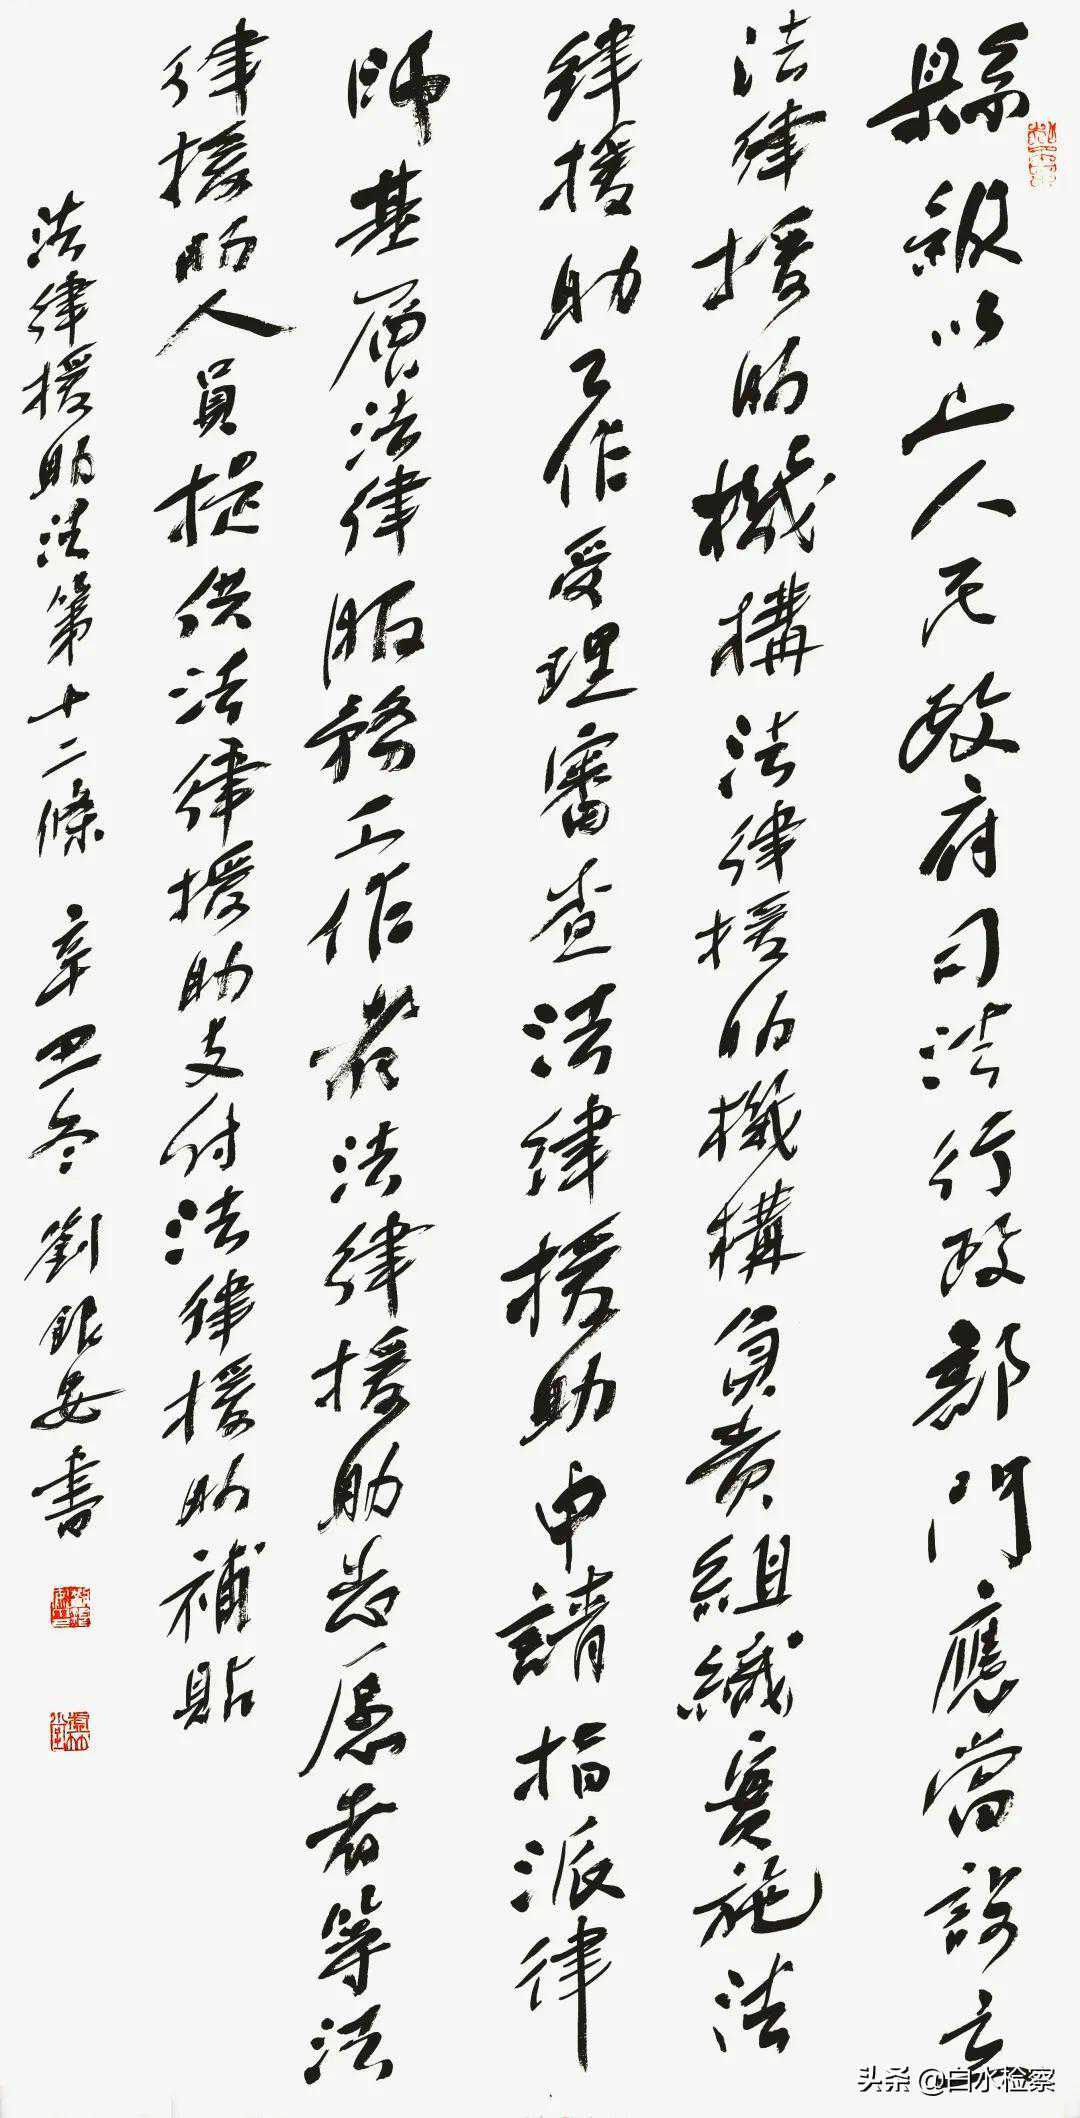 縣級以上人民政府司法行政部門應當設立
法律援助機構法律援助機構負責組織實施法
律援助工作受理審查法律援助申請指派律
師基層法律服務工作者法律援助志愿者等法
律援助人員提供法律援助支付法律援助補貼
法律援助法第十二條 辛丑冬 劉銀安書
头条 @白水检察